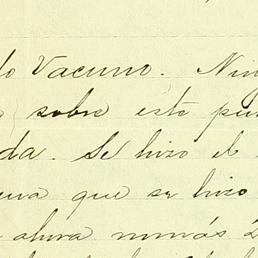 do Vacuno. Nin
sobre este pu
da. Se hizo el
que se hizo
ahora